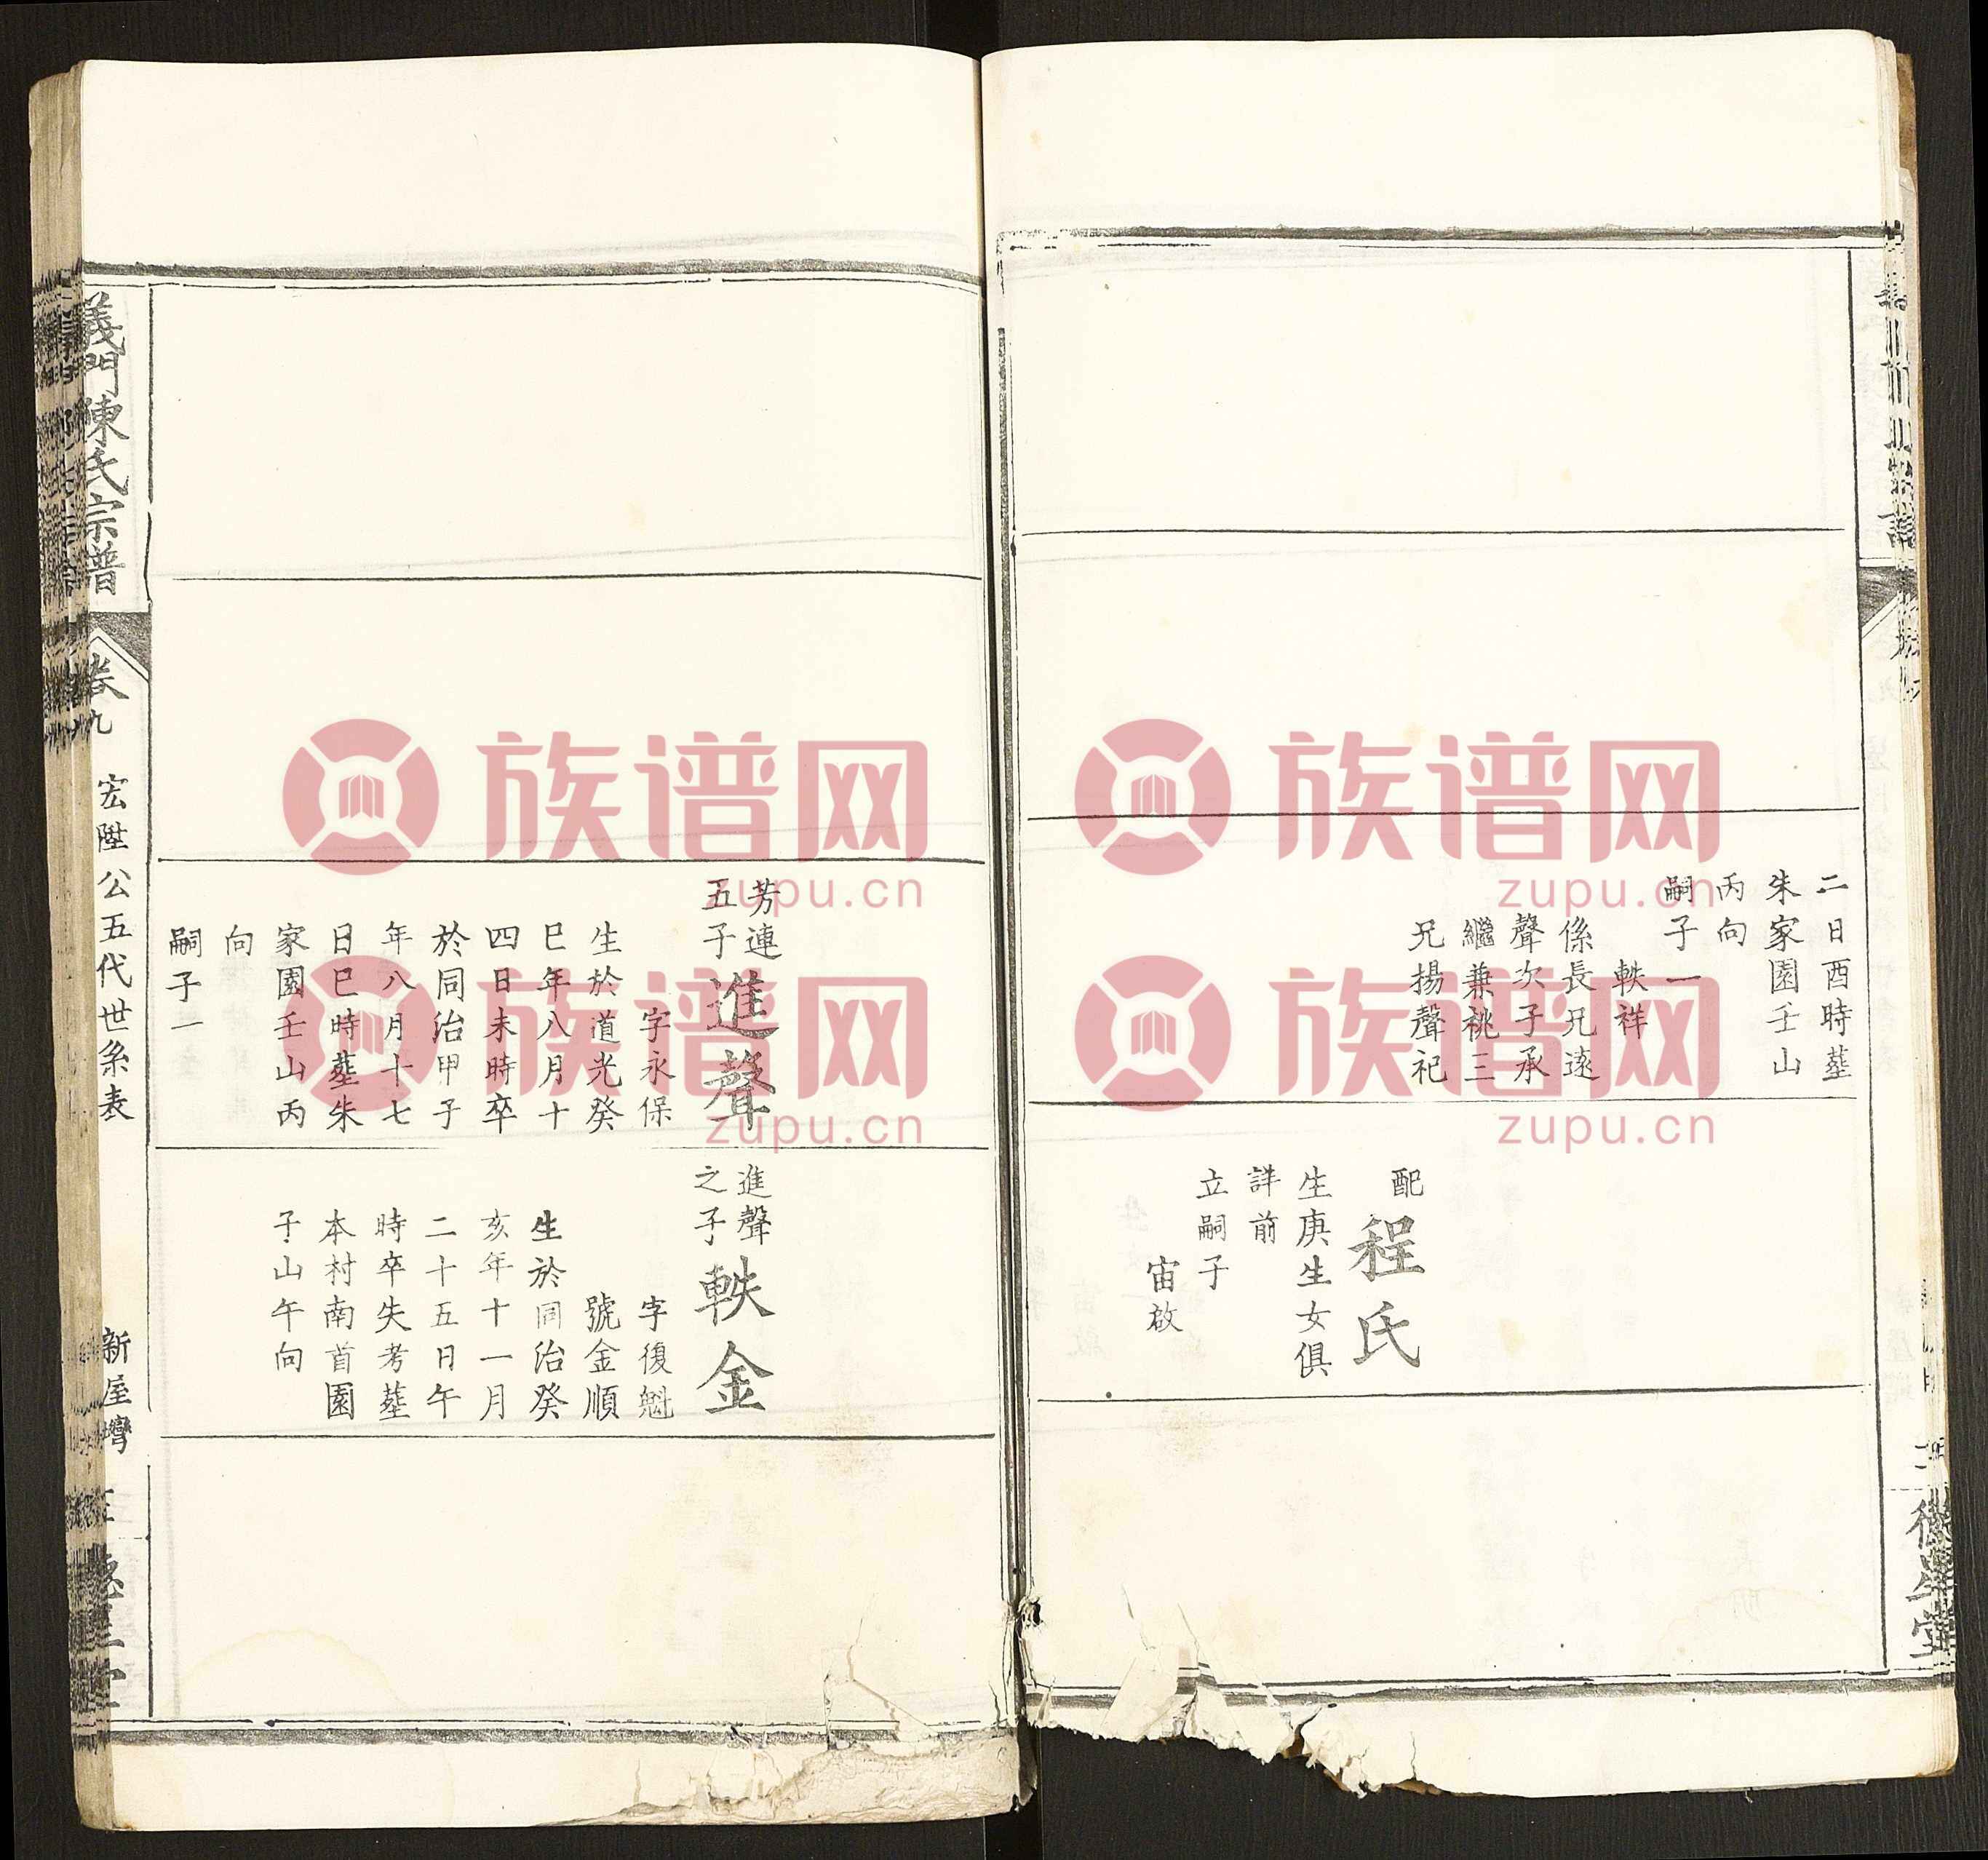 二日酉時塟
朱家園壬山
丙向
嗣子一
軼祥
係長兄遠
聲次子承
繼兼祧三
兄揚聲祀
配
程氏
生庚生女俱
詳前
立嗣子
宙啟
芳連
五子
進聲
字永保
生於道光癸
巳年八月十
四日未時卒
於同治甲子
年八月十七
日巳時塟朱
家園壬山丙
向
嗣子一
進聲
之子
軼金
字復魁
號金順
生於同治癸
亥年十一月
二十五日午
時卒失考塟
本村南首園
子山午向
義門陳氏宗譜
卷九
宏陞公五代世系表
新屋灣
族谱网
zupu.cn
族谱网
zupu.cn
族谱网
zupu.cn
族谱网
zupu.cn